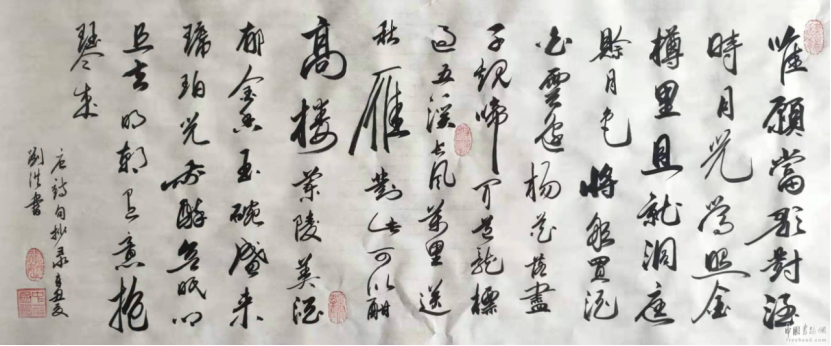 唯願當歌對酒
時月光常照金
樽里且就洞庭
賒月色將船買酒
白雲邊楊花落盡
子規啼聞道龍標
過五溪長風萬里送
秋雁對此可以酣
高樓蘭陵美酒
郁金香玉碗盛来
琥珀光我醉欲眠卿
且去明朝有意抱
琴来
唐詩句抄录辛丑夏
劉書